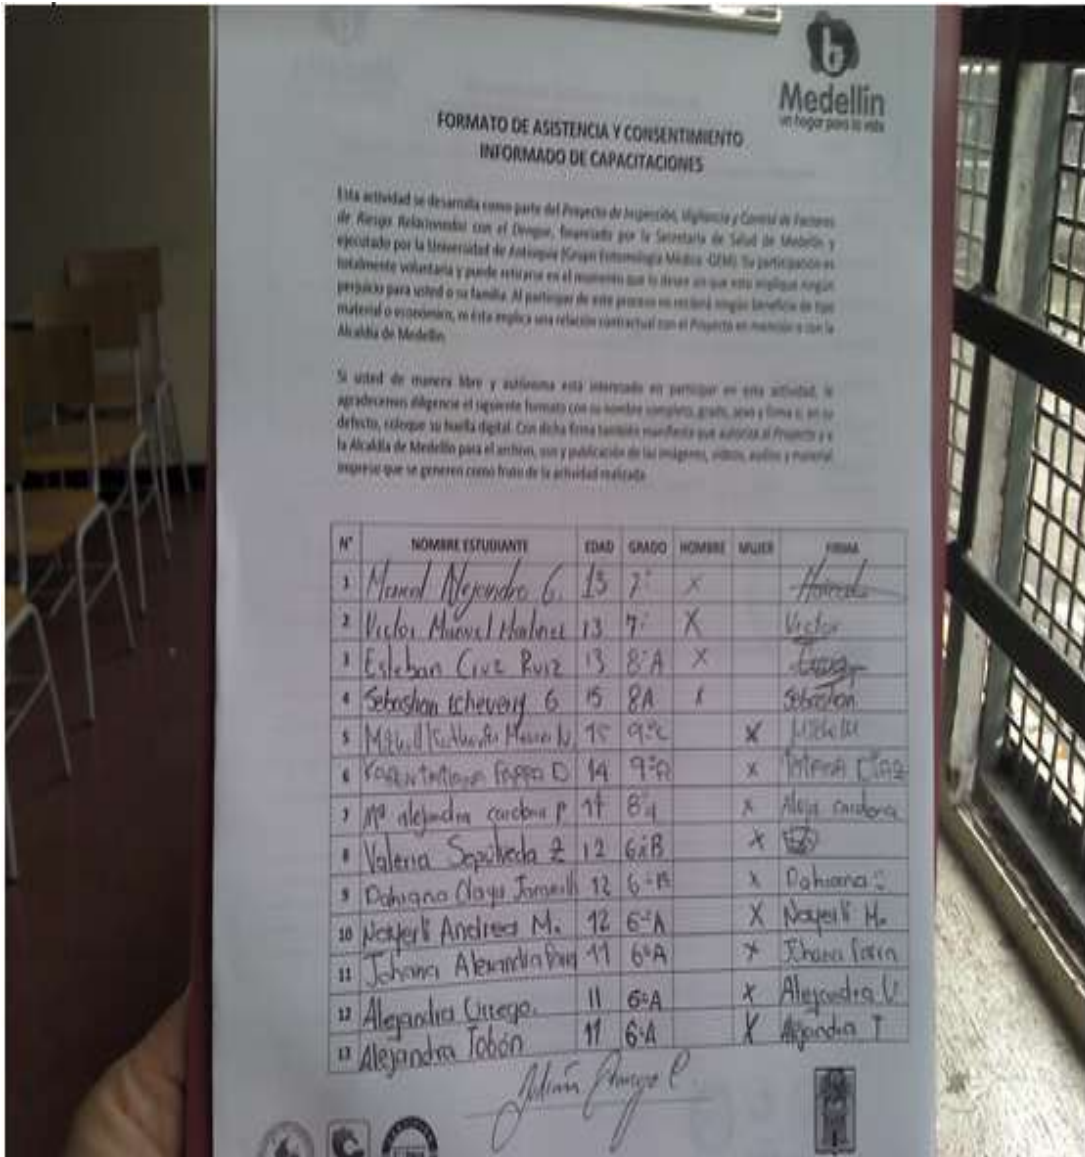 Medellín
un hogar para la vida
FORMATO DE ASISTENCIA Y CONSENTIMIENTO
INFORMADO DE CAPACITACIONES
Esta actividad se desarrolla como parte del Proyecto de Inspección, Vigilancia y Control de Factores
de Riesgo Relacionados con el Dengue, financiado por la Secretaría de Salud de Medellín y
ejecutado por la Universidad de Antioquia (Grupo Entomología Médica -GEM). Su participación es
totalmente voluntaria y puede retirarse en el momento que lo desee sin que esto implique ningún
perjuicio para usted o su familia. Al participar de este proceso no recibirá ningún beneficio de tipo
material o económico, ni ésta implica una relación contractual con el Proyecto en mención o con la
Alcaldía de Medellín.
Si usted de manera libre y autónoma está interesado en participar en esta actividad, le
agradecemos diligencie el siguiente formato con su nombre completo, grado, sexo y firma o, en su
defecto, coloque su huella digital. Con dicha firma también manifiesta que autoriza al Proyecto y a
la Alcaldía de Medellín para el archivo, uso y publicación de las imágenes, videos, audios y material
impreso que se generen como fruto de la actividad realizada.
N° NOMBRE ESTUDIANTE EDAD GRADO HOMBRE MUJER FIRMA
1 Alejandro G. 13 7° X
2 Victor Manuel 13 7° X Victor
3 Esteban Cruz Ruiz 13 8°A X
4 Sebastian Echeverry G 15 8A X Sebastian
5 9°C X
6 Tatiana D 14 9° X Tatiana Díaz
7 Mª alejandra cardona P 8° X Aleja cardona
8 Valeria Sepúlveda Z 12 6°B X
9 Dahiana 12 6° X Dahiana
10 Nayerli Andrea M. 12 6°A X Nayerli M.
11 Johana Alexandra 11 6°A X Johana
12 Alejandra Urrego. 11 6°A X Alejandra U
13 Alejandra Tobón 11 6°A X Alejandra T